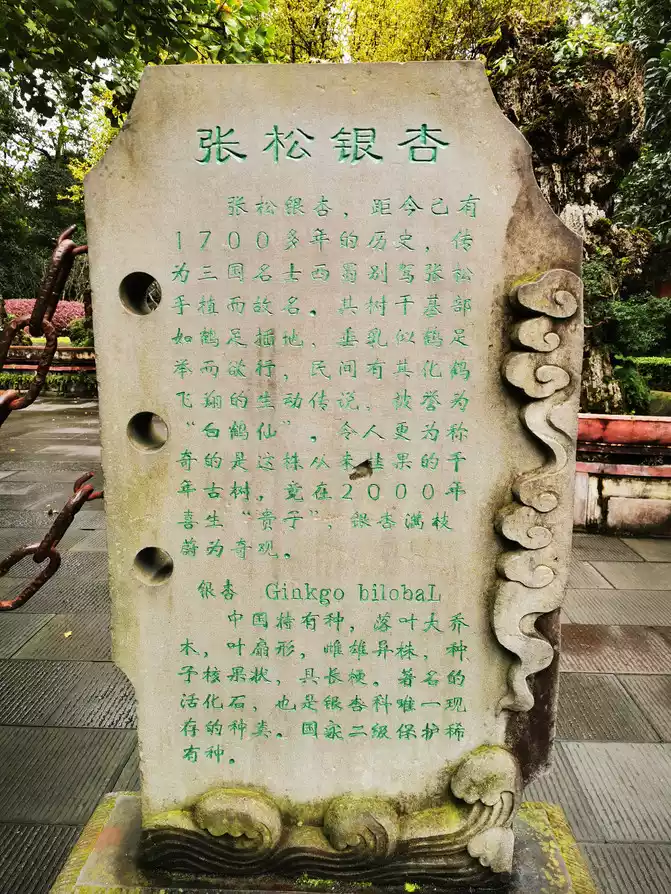 张松银杏
张松银杏，距今已有
1700多年的历史，传
为三国名士西蜀别驾张松
手植而故名。其树干基部
如鹤足插地，垂乳似鹤足
举而欲行，民间有其化鹤
飞翔的生动传说，被誉为
“白鹤仙”。令人更为称
奇的是这株从来挂果的千
年古树，竟在2000年
喜生“贵子”，银杏满枝
蔚为奇观。
银杏 Ginkgo bilobaL
中国特有种，落叶大乔
木，叶扇形，雌雄异株，种
子核果状，具长梗。著名的
活化石，也是银杏科唯一现
存的种类。国家二级保护稀
有种。